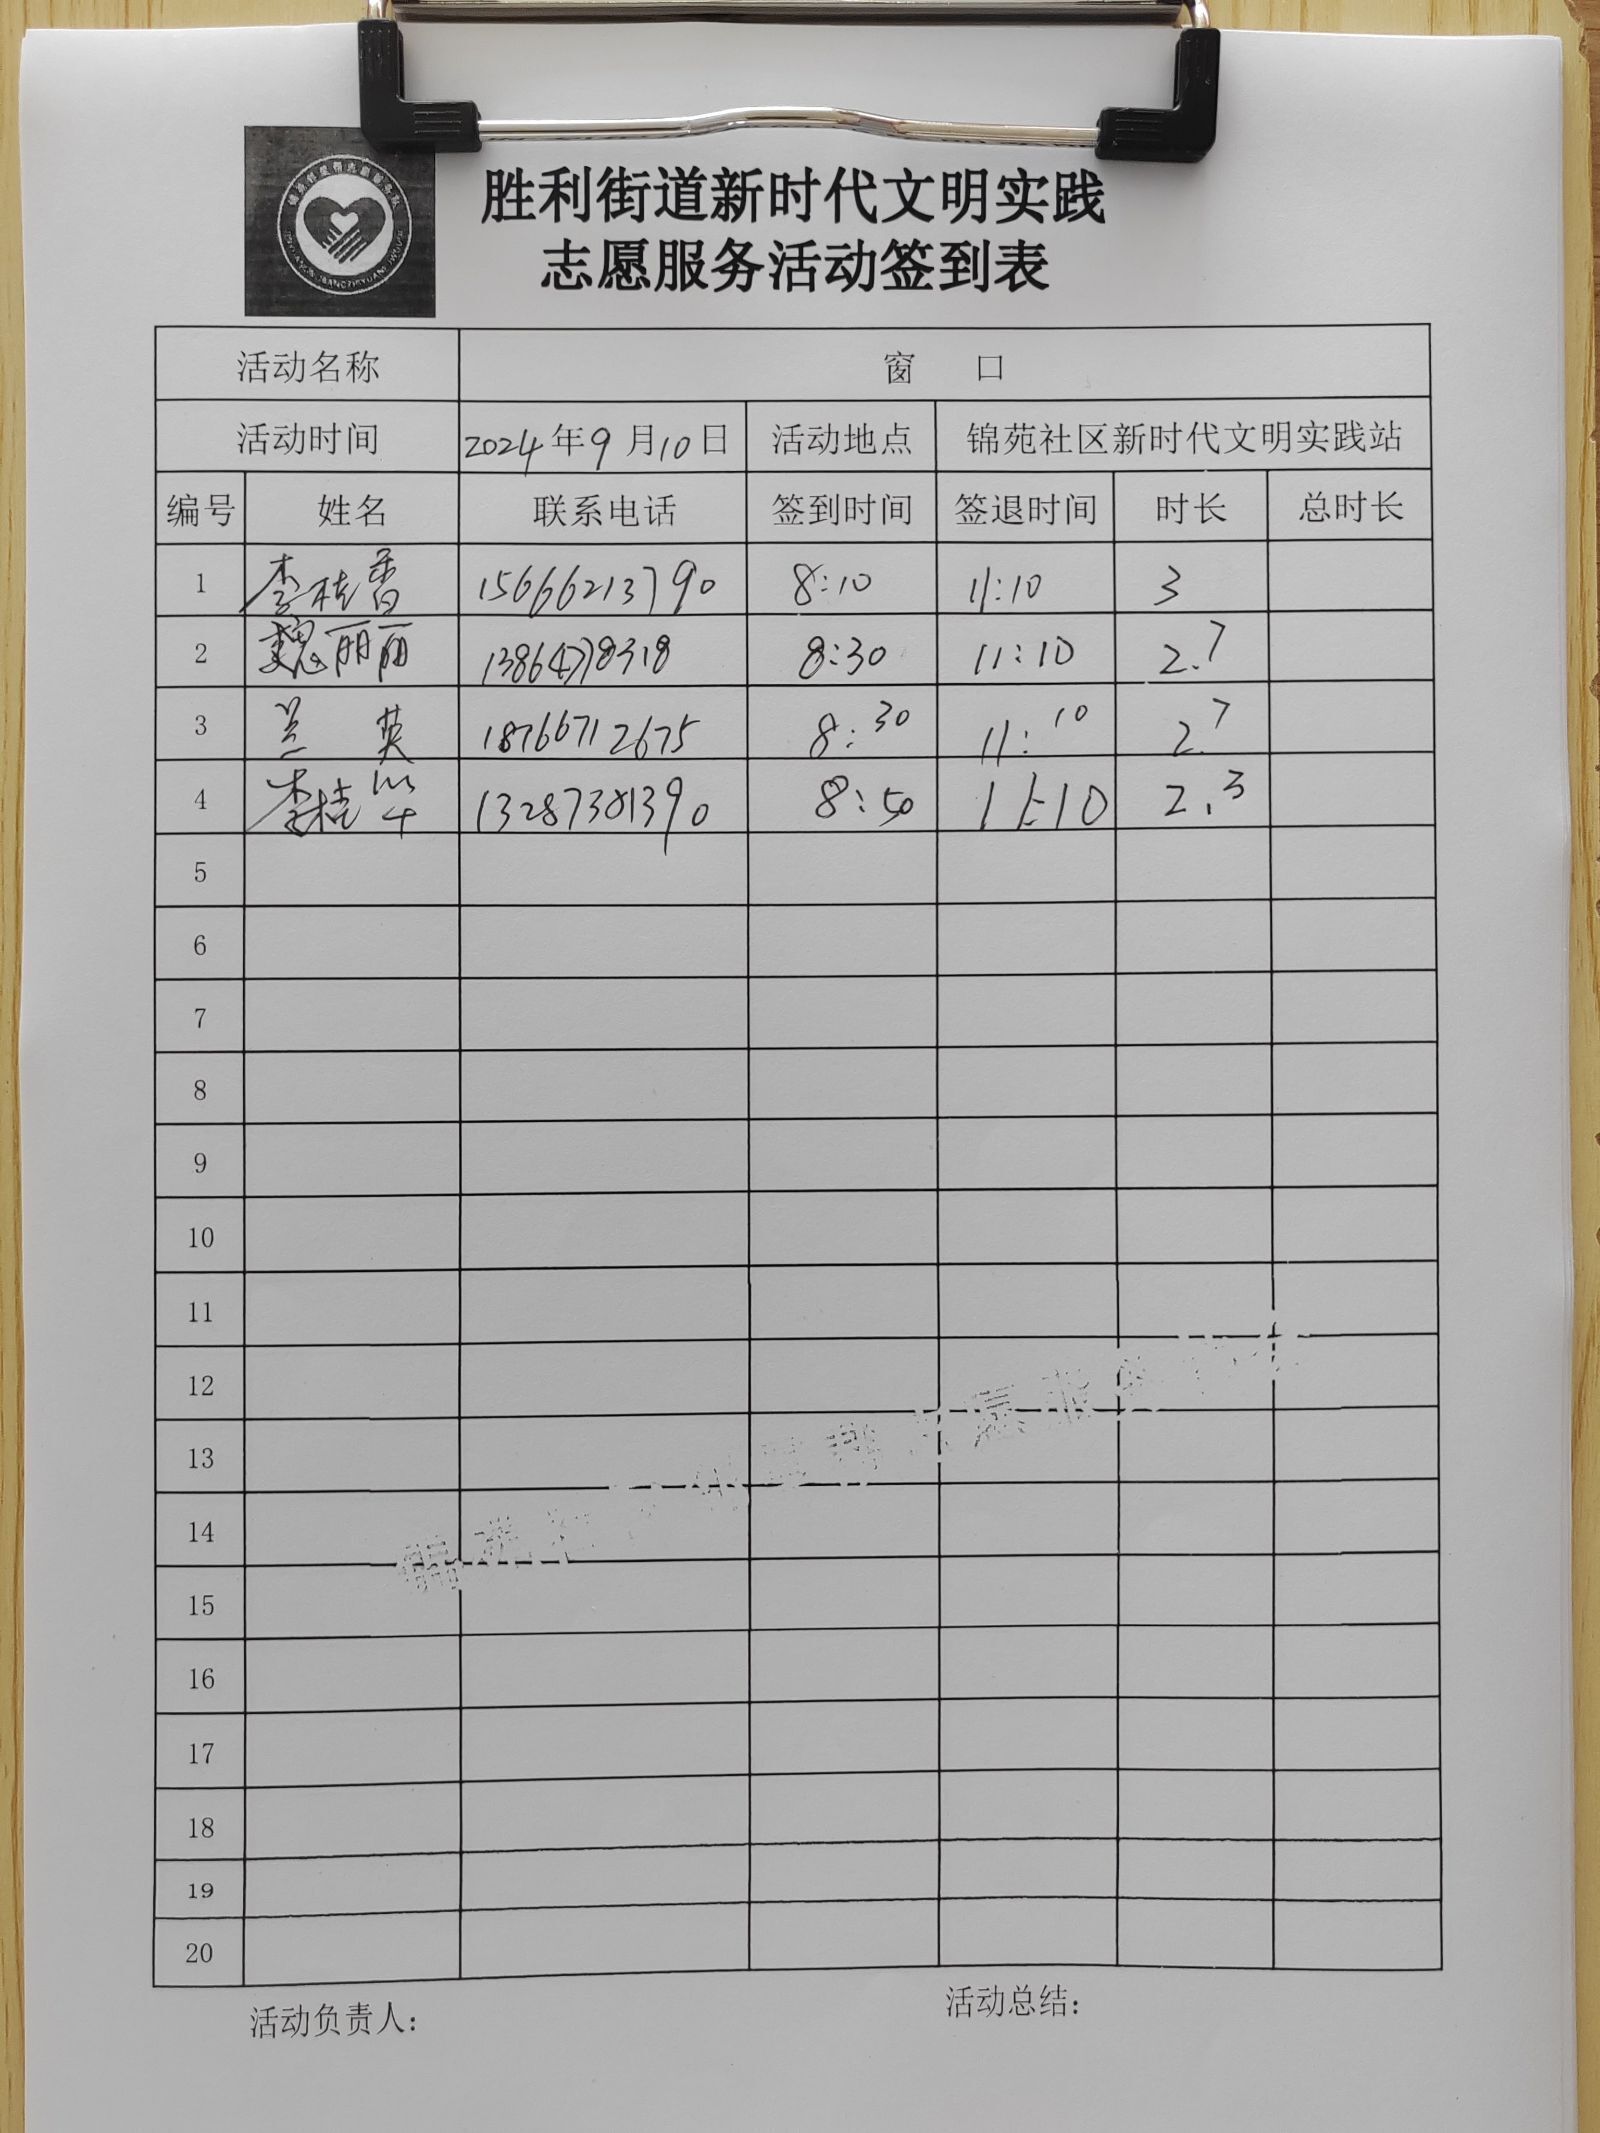 胜利街道新时代文明实践
志愿服务活动签到表
活动名称 窗 口
活动时间 2024年9月10日 活动地点 锦苑社区新时代文明实践站
编号 姓名 联系电话 签到时间 签退时间 时长 总时长
1 李桂香 15666213790 8:10 11:10 3
2 魏丽丽 13864778318 8:30 11:10 2.7
3 兰英 18766712675 8:30 11:10 2.7
4 李桂华 13287381390 8:50 11:10 2.3
5
6
7
8
9
10
11
12
13
14
15
16
17
18
19
20
活动负责人: 活动总结: